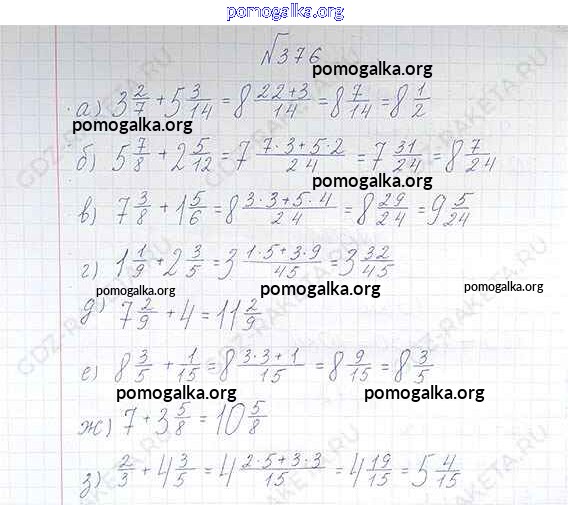 pomogalka.org
№376
pomogalka.org
а) 3 2/7 + 5 3/14 = 8 (22+3)/14 = 8 7/14 = 8 1/2
pomogalka.org
б) 5 7/8 + 2 5/12 = 7 (7·3+5·2)/24 = 7 31/24 = 8 7/24
pomogalka.org
в) 7 3/8 + 1 5/6 = 8 (3·3+5·4)/24 = 8 29/24 = 9 5/24
г) 1 1/9 + 2 3/5 = 3 (1·5+3·9)/45 = 3 32/45
pomogalka.org pomogalka.org pomogalka.org
д) 7 2/9 + 4 = 11 2/9
е) 8 3/5 + 1/15 = 8 (3·3+1)/15 = 8 9/15 = 8 3/5
pomogalka.org pomogalka.org
ж) 7 + 3 5/8 = 10 5/8
з) 2/3 + 4 3/5 = 4 (2·5+3·3)/15 = 4 19/15 = 5 4/15
GDZ-RAKETA.RU